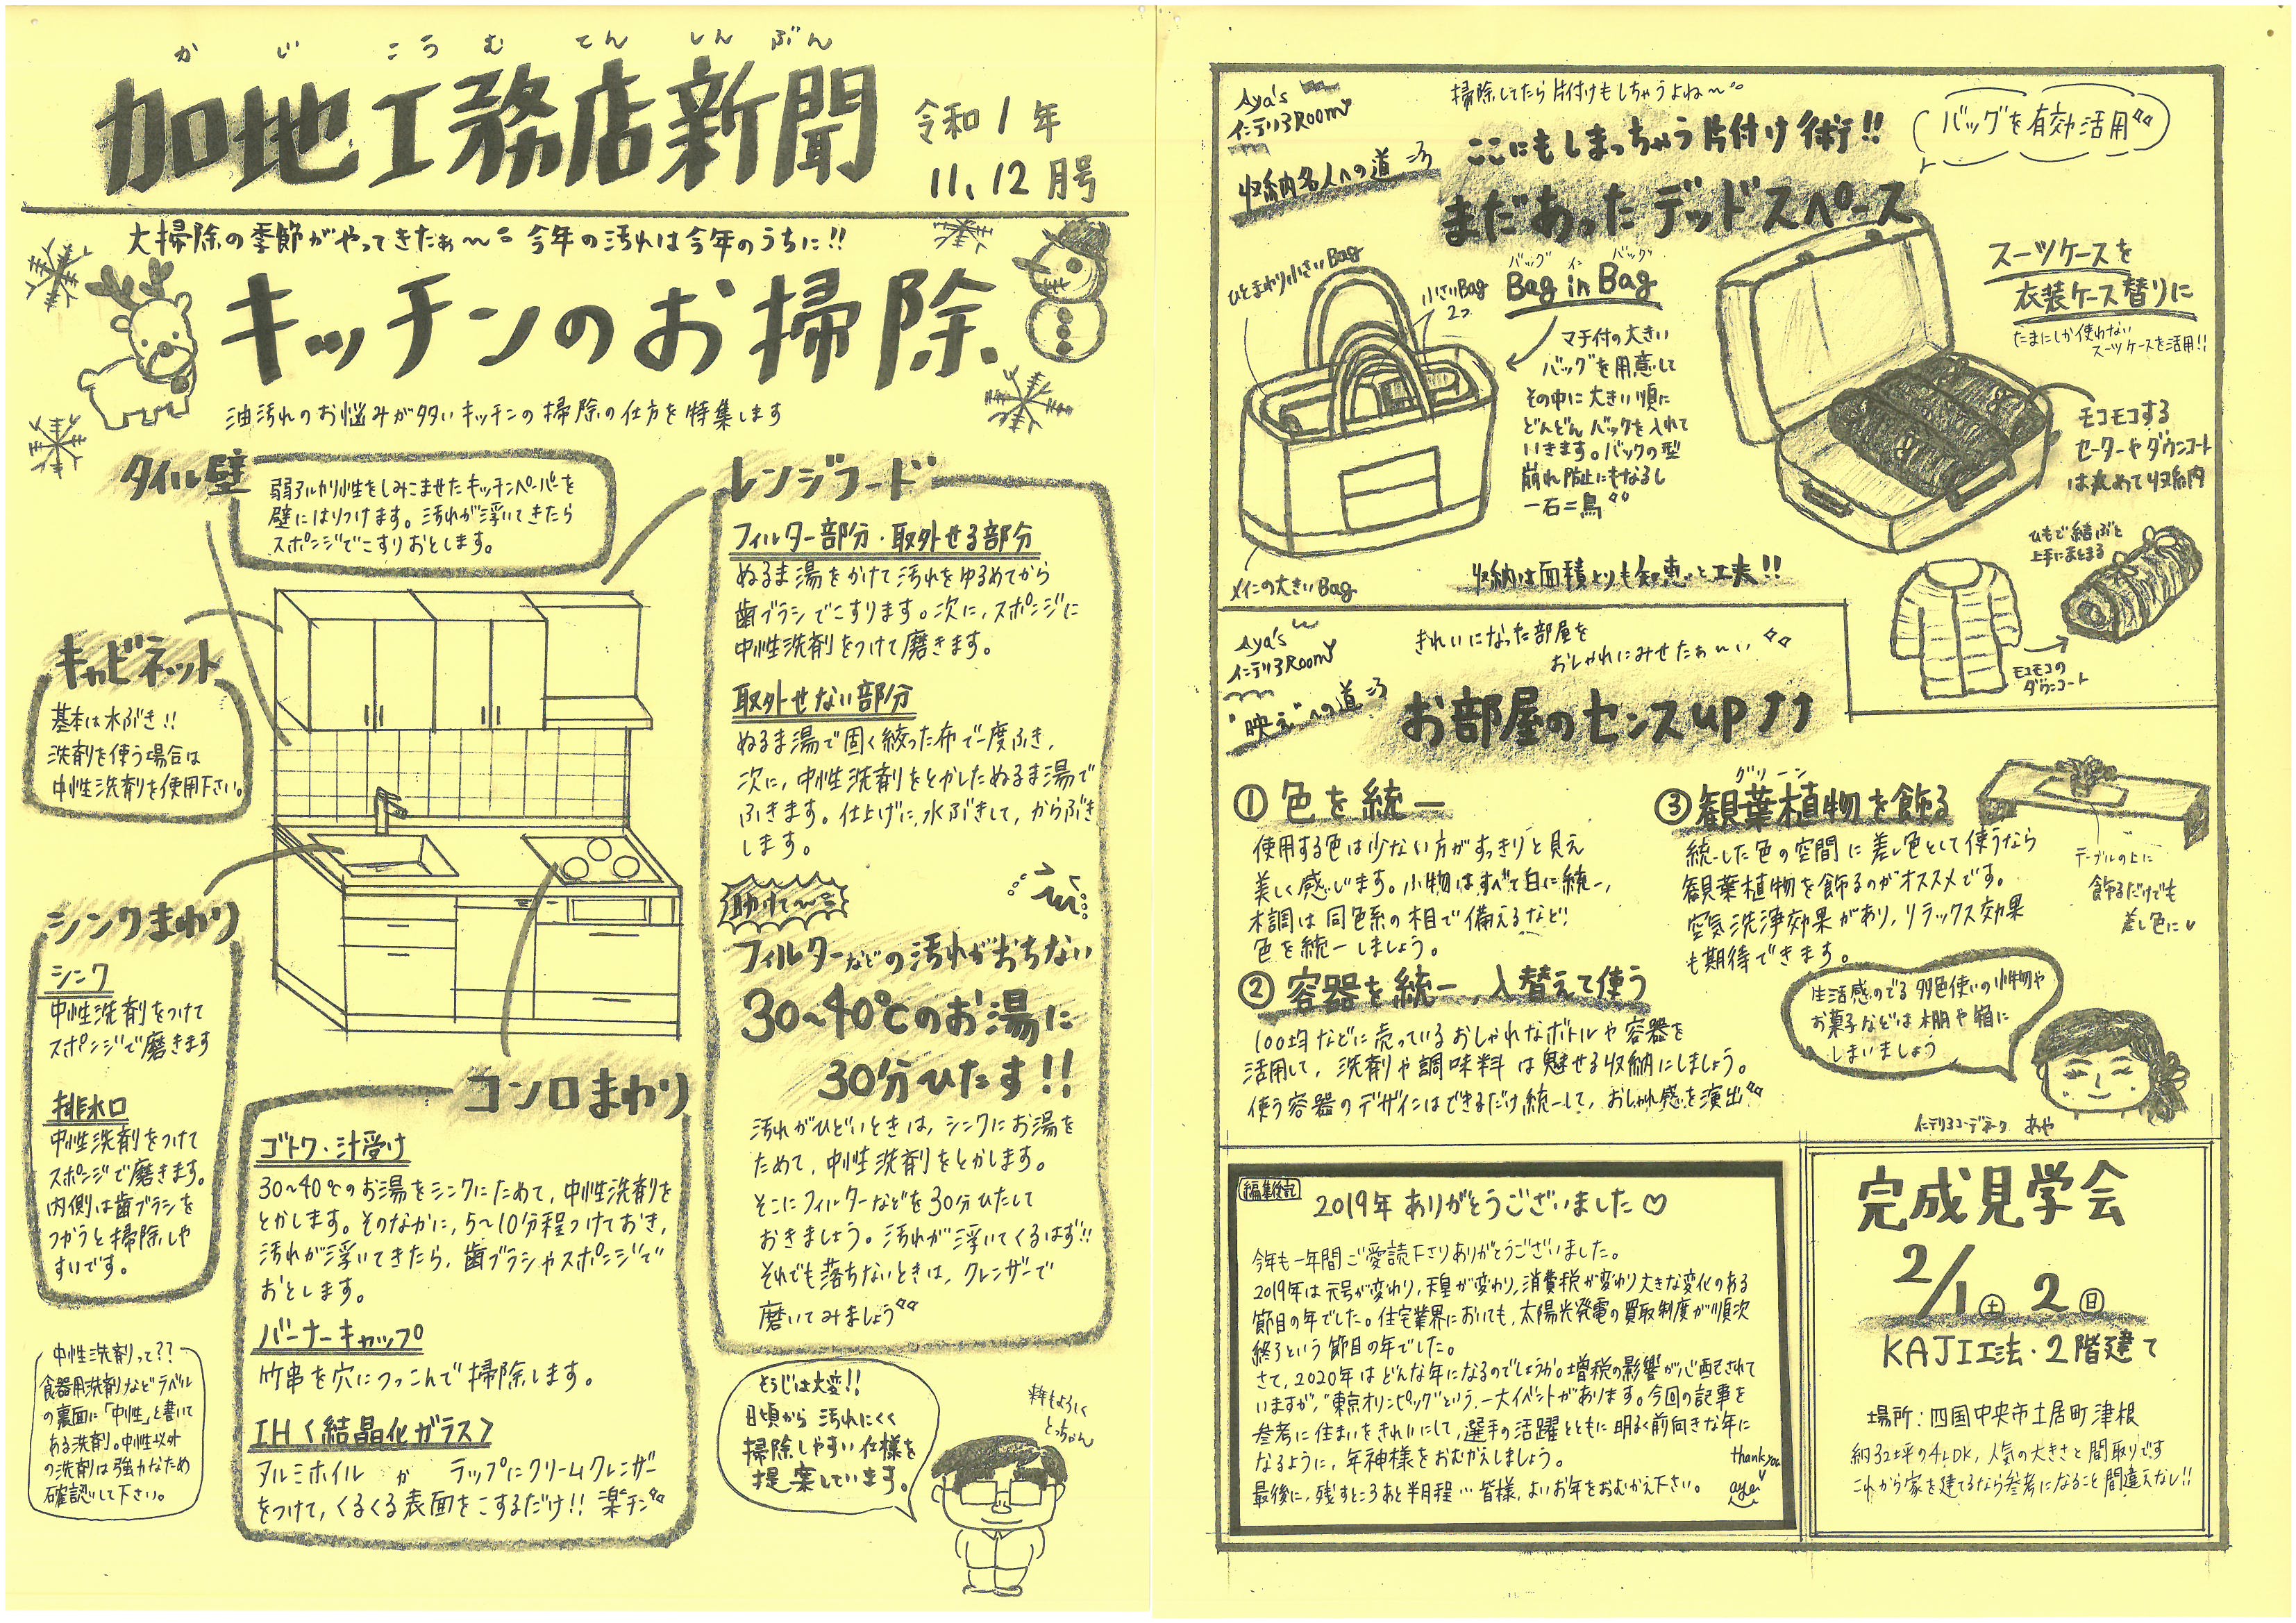 かじこうむてんしんぶん
加地工務店新聞
令和1年
11、12月号
大掃除の季節がやってきたぁ～ 今年の汚れは今年のうちに!!
キッチンのお掃除
油汚れのお悩みが多いキッチンの掃除の仕方を特集します
タイル壁
弱アルカリ性をしみこませたキッチンペーパーを
壁にはりつけます。汚れが浮いてきたら
スポンジでこすりおとします。
キャビネット
基本は水ぶき!!
洗剤を使う場合は
中性洗剤を使用下さい。
シンクまわり
シンク
中性洗剤をつけて
スポンジで磨きます
排水口
中性洗剤をつけて
スポンジで磨きます。
内側は歯ブラシを
つかうと掃除しや
すいです。
中性洗剤って??
食器用洗剤などラベル
の裏面に「中性」と書いて
ある洗剤。中性以外
の洗剤は強力なため
確認して下さい。
コンロまわり
ゴトク・汁受け
30～40℃のお湯をシンクにためて、中性洗剤を
とかします。そのなかに、5～10分程つけておき、
汚れが浮いてきたら、歯ブラシやスポンジで
おとします。
バーナーキャップ
竹串を穴につっこんで掃除します。
IH〈結晶化ガラス〉
アルミホイル か ラップにクリームクレンザー
をつけて、くるくる表面をこするだけ!! 楽チン
レンジフード
フィルター部分・取外せる部分
ぬるま湯をかけて汚れをゆるめてから
歯ブラシでこすります。次に、スポンジに
中性洗剤をつけて磨きます。
取外せない部分
ぬるま湯で固く絞った布で一度ふき、
次に、中性洗剤をとかしたぬるま湯で
ふきます。仕上げに、水ぶきして、からぶき
します。
助けて～
フィルターなどの汚れがおちない
30～40℃のお湯に
30分ひたす!!
汚れがひどいときは、シンクにお湯を
ためて、中性洗剤をとかします。
そこにフィルターなどを30分ひたして
おきましょう。汚れが浮いてくるはず!!
それでも落ちないときは、クレンザーで
磨いてみましょう
そうじは大変!!
日頃から汚れにくく
掃除しやすい仕様を
提案しています。
来年もよろしく
とっちゃん
Aya's
インテリアRoom
収納名人への道
掃除してたら片付けもしちゃうよね～
ここにもしまっちゃう片付け術!!
まだあったデッドスペース
バッグを有効活用
ひとまわり小さいBag
小さいBag
2つ
バッグ イン バッグ
Bag in Bag
マチ付の大きい
バッグを用意して
その中に大きい順に
どんどんバックを入れて
いきます。バックの型
崩れ防止にもなるし
一石二鳥
メインの大きいBag
収納は面積よりも知恵と工夫!!
スーツケースを
衣装ケース替りに
たまにしか使わない
スーツケースを活用!!
モコモコする
セーターやダウンコート
は丸めて収納
ひもで結ぶと
上手にまとまる
モコモコの
ダウンコート
Aya's
インテリアRoom
"映え"への道
きれいになった部屋を
おしゃれにみせたぁ～い
お部屋のセンスup↑↑
① 色を統一
使用する色は少ない方がすっきりと見え
美しく感じます。小物はすべて白に統一、
木調は同色系の木目で備えるなど!
色を統一しましょう。
② 容器を統一、入替えて使う
100均などに売っているおしゃれなボトルや容器を
活用して、洗剤や調味料は魅せる収納にしましょう。
使う容器のデザインはできるだけ統一して、おしゃれ感を演出
グリーン
③観葉植物を飾る
統一した色の空間に差し色として使うなら
観葉植物を飾るのがオススメです。
空気洗浄効果があり、リラックス効果
も期待できます。
テーブルの上に
飾るだけでも
差し色に
生活感のでる多色使いの小物や
お菓子などは棚や箱に
しまいましょう
インテリアコーディネーク あや
編集後記
2019年ありがとうございました♡
今年も一年間ご愛読下さりありがとうございました。
2019年は元号が変わり、天皇が変わり、消費税が変わり大きな変化のある
節目の年でした。住宅業界においても、太陽光発電の買取制度が順次
終了という節目の年でした。
さて、2020年はどんな年になるのでしょうか。増税の影響が心配されて
いますが、"東京オリンピック"という、一大イベントがあります。今回の記事を
参考に住まいをきれいにして、選手の活躍とともに明るく前向きな年に
なるように、年神様をおむかえしましょう。
最後に、残すところあと半月程… 皆様、よいお年をおむかえ下さい。
thank you
aya
完成見学会
2/1土 2日
KAJI工法・2階建て
場所:四国中央市土居町津根
約32坪の4LDK、人気の大きさと間取りです
これから家を建てるなら参考になること間違えなし!!